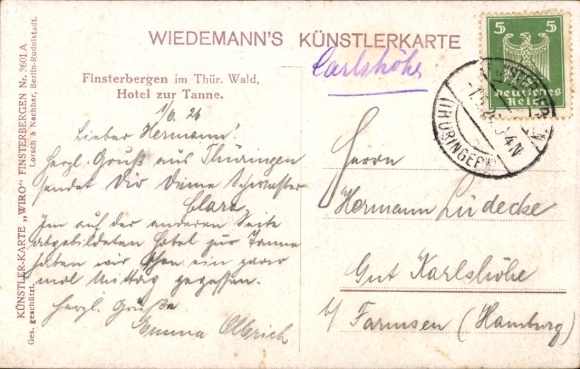 WIEDEMANN'S KÜNSTLERKARTE
Carlshöhe
Finsterbergen im Thür. Wald,
Hotel zur Tanne.
1/6.26
Lieber Hermann!
Herzl. Gruß aus Thüringen
sendet Dir Deine Schwester
Clara.
Im auf der anderen Seite
abgebildeten Hotel zur Tanne
haben wir schon ein paar
mal Mittag gegessen.
Herzl. Grüße
Emma Olbrich
Herrn
Hermann Lüdecke
Gut Karlshöhe
b/ Farmsen (Hamburg)
5 5
Deutsches
Reich
(THÜRINGER
KÜNSTLER-KARTE „WIRO“ FINSTERBERGEN Nr. 2601 A
Lorsch & Nachbar, Berlin-Rudolstadt.
Ges. geschützt.